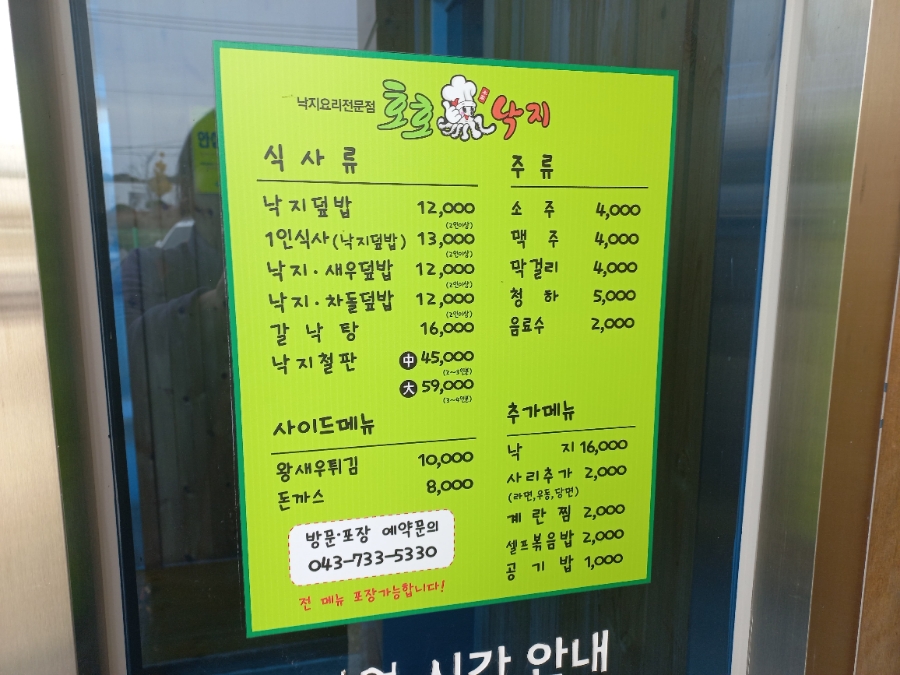 낙지요리전문점 호호낙지
식사류
낙지덮밥 12,000
(2인이상)
1인식사(낙지덮밥) 13,000
(2인이상)
낙지·새우덮밥 12,000
(2인이상)
낙지·차돌덮밥 12,000
(2인이상)
갈낙탕 16,000
낙지철판 中 45,000
(2~3인분)
大 59,000
(3~4인분)
사이드메뉴
왕새우튀김 10,000
돈까스 8,000
방문·포장 예약문의
043-733-5330
전 메뉴 포장가능합니다!
주류
소주 4,000
맥주 4,000
막걸리 4,000
청하 5,000
음료수 2,000
추가메뉴
낙지 16,000
사리추가 2,000
(라면,우동,당면)
계란찜 2,000
셀프볶음밥 2,000
공기밥 1,000
시간 안내